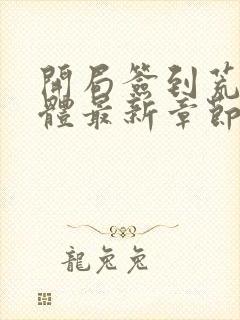 開局簽到荒
體最新章節
龍兔兔